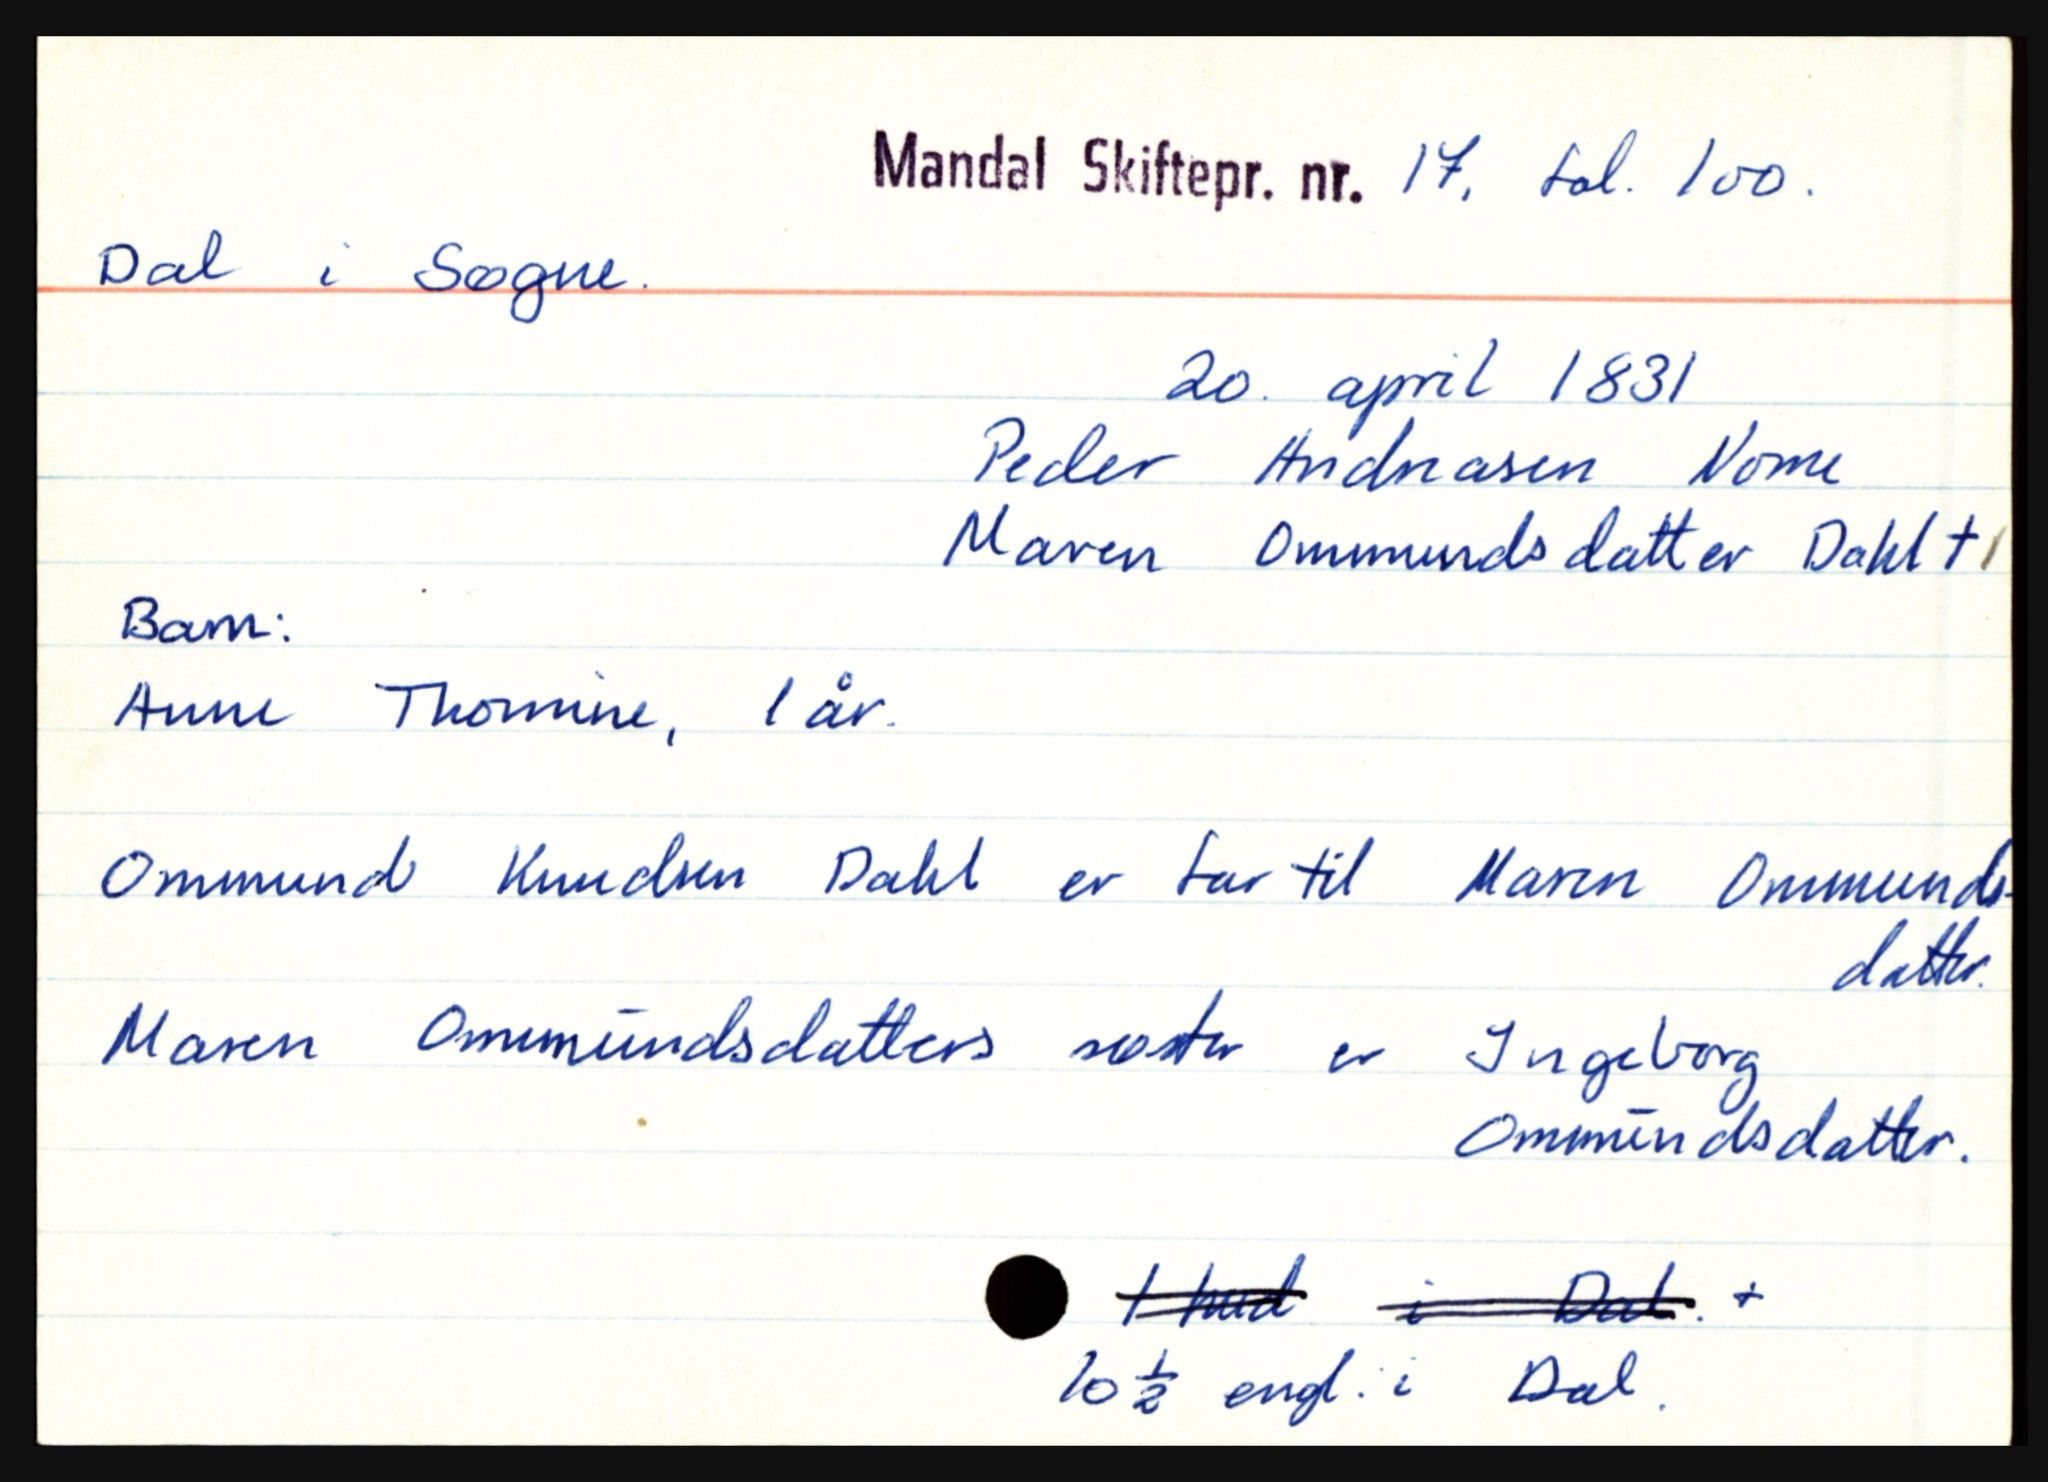 Mandal Skiftepr. nr. 17, fol. 100.
Dal i Søgne.
20. april 1831
Peder Andreasen Nome
Maren Ommundsdatter Dahl +
Barn:
Anne Thomine, 1 år.
Ommund Knudsen Dahl er far til Maren Ommunds-
datter.
Maren Ommundsdatters søster er Ingeborg
Ommundsdatter.
1 hud i Dal. +
10 ½ engl. i Dal.